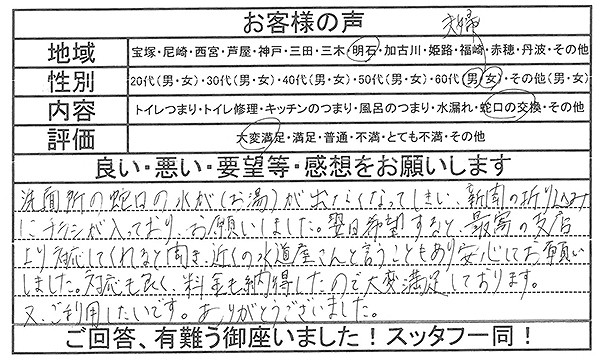 お客様の声 夫婦
地域 宝塚・尼崎・西宮・芦屋・神戸・三田・三木・明石・加古川・姫路・福崎・赤穂・丹波・その他
性別 20代(男・女)・30代(男・女)・40代(男・女)・50代(男・女)・60代(男・女)・その他(男・女)
内容 トイレつまり・トイレ修理・キッチンのつまり・風呂のつまり・水漏れ・蛇口の交換・その他
評価 大変満足・満足・普通・不満・とても不満・その他
良い・悪い・要望等・感想をお願いします
洗面所の蛇口の水が(お湯)が出なくなってしまい、新聞の折り込み
にチラシが入っており、お願いしました。翌日希望すると、最寄の支店
より対応してくれると聞き、近くの水道屋さんと言うこともあり安心してお願い
しました。対応も良く、料金も納得したので大変満足しております。
又、ご利用したいです。ありがとうございました。
ご回答、有難う御座いました！スッタフ一同！